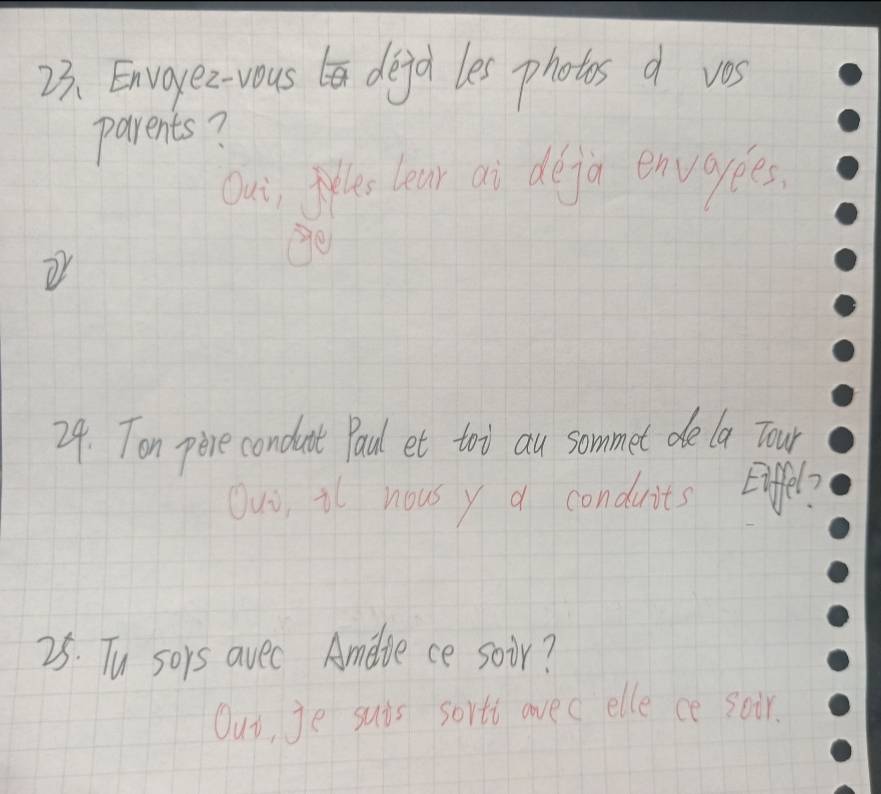 23. Envoyez-vous déjà les photos à vos
parents?
Oui, les leur ai déjà envoyées.
Je
24. Ton père conduit Paul et toi au sommet de la Tour
Eiffel?
Oui, il nous y a conduits
25. Tu sors avec Amélie ce soir?
Oui, je suis sorti avec elle ce soir.